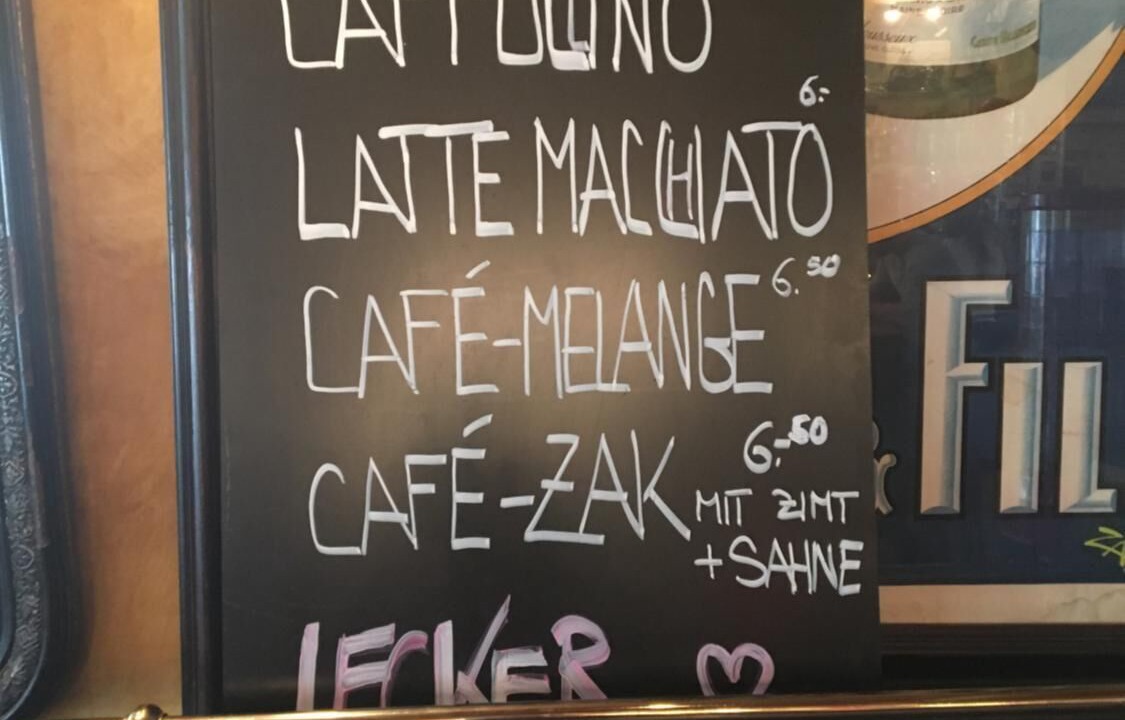 CAPPUCINO
6.-
LATTE MACCHIATO
6.50
CAFÉ-MELANGE
6.-50
CAFÉ-ZAK
MIT ZIMT
+ SAHNE
LECKER
& FIL